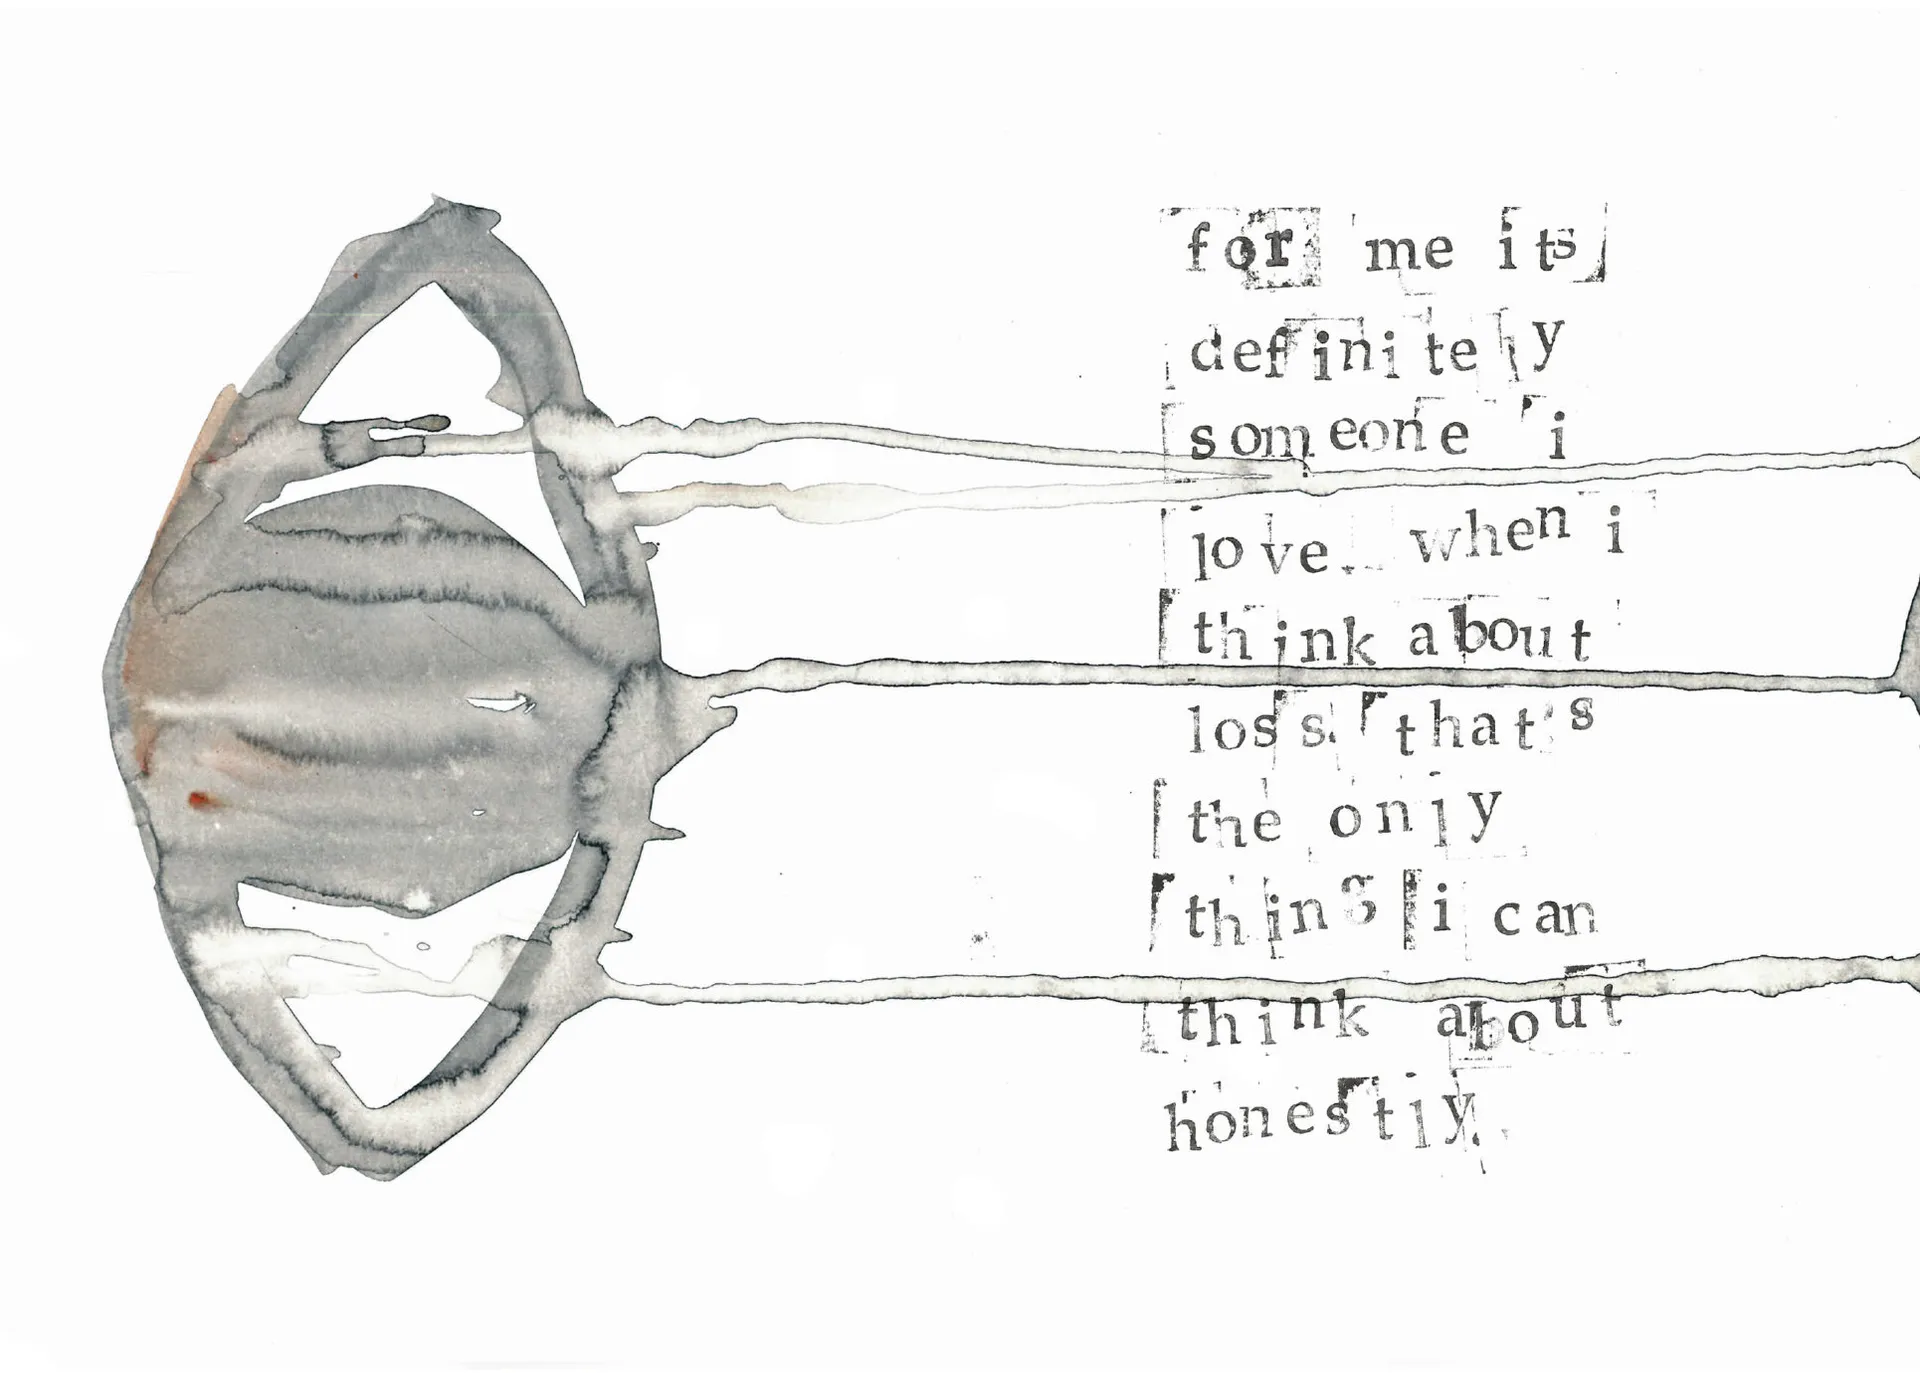 for me its
definitely
someone i
love. when i
think about
loss. that's
the only
thing i can
think about
honestly.